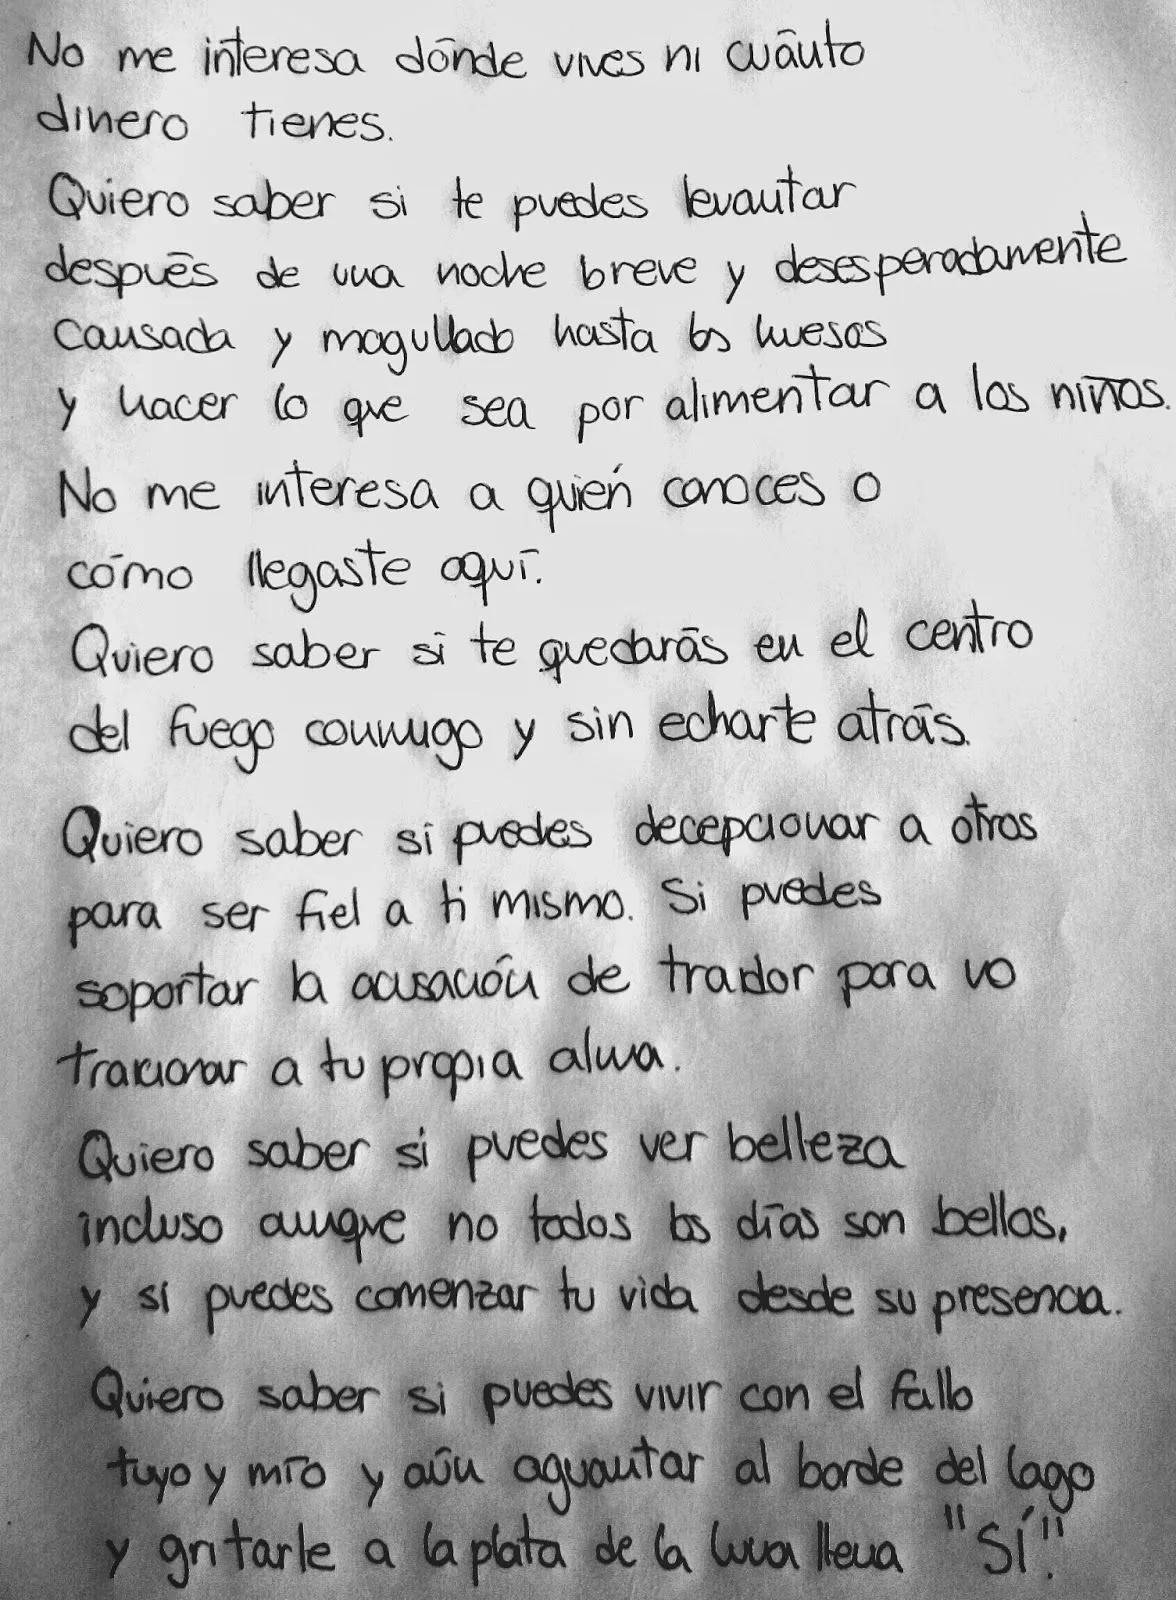 No me interesa dónde vives ni cuánto
dinero tienes.
Quiero saber si te puedes levantar
después de una noche breve y desesperadamente
cansada y magullado hasta los huesos
y hacer lo que sea por alimentar a los niños.
No me interesa a quién conoces o
cómo llegaste aquí.
Quiero saber si te quedarás en el centro
del fuego conmigo y sin echarte atrás.
Quiero saber si puedes decepcionar a otros
para ser fiel a ti mismo. Si puedes
soportar la acusación de traidor para no
traicionar a tu propia alma.
Quiero saber si puedes ver belleza
incluso aunque no todos los días son bellos,
y sí puedes comenzar tu vida desde su presencia.
Quiero saber si puedes vivir con el fallo
tuyo y mío y aún aguantar al borde del lago
y gritarle a la plata de la luna llena "SÍ".